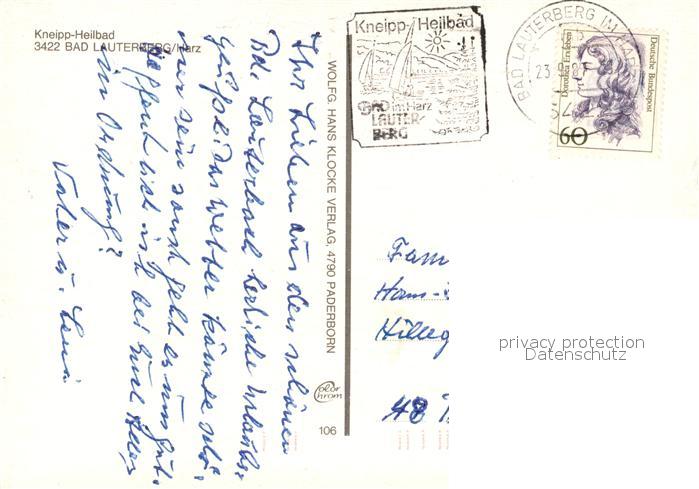 Kneipp-Heilbad
3422 BAD LAUTERBERG/Harz
Ihr Lieben aus den schönen
Bd. Lauterbach herzliche Urlaubs-
grüße. Das Wetter könnte schö-
ner sein sonst geht es uns gut.
Hoffentlich ist bei Euch alles
in Ordnung?
Vater u. Leni
WOLFG. HANS KLOCKE VERLAG, 4790 PADERBORN
color
chrom
106
Kneipp-Heilbad
BAD im Harz
LAUTER-
BERG
BAD LAUTERBERG IM HARZ
23.9.8
Dorothea Erxleben
Deutsche Bundespost
60
Fam
Hans-
Hilleg
48
privacy protection
Datenschutz